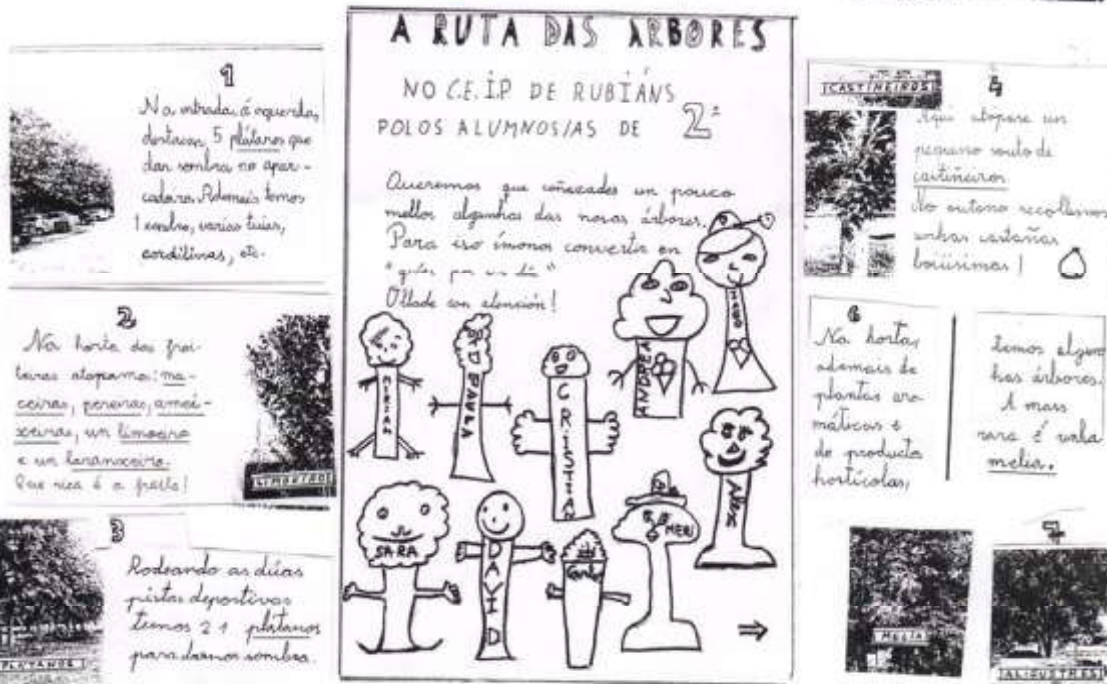 1
Na entrada, á esquerda,
destacan 5 plátanos que
dan sombra no apar-
cadoiro. Ademais temos
1 cedro, varias tuias,
cordilinas, etc.
2
Na horta das froi-
teiras atopamos: ma-
ceiras, pereiras, amei-
xeiras, un limoeiro
e un laranxeiro.
Que rica é a froita!
LIMOEIRO
3
Rodeando as dúas
pistas deportivas
temos 21 plátanos
para darnos sombra.
PLÁTANOS
A RUTA DAS ÁRBORES
NO C.E.I.P DE RUBIÁNS
POLOS ALUMNOS/AS DE 2º
Queremos que coñezades un pouco
mellor algunhas das nosas árbores.
Para iso ímonos convertir en
"guías por un día"
Ollade con atención!
MIRIAM
PAULA
CRISTIAN
ANDREA
IAGO
SARA
DAVID
Carlos
MERI
Alex
⇒
CASTIÑEIROS
4
Aquí atopare un
pequeno souto de
castiñeiros.
No outono recollemos
unhas castañas
boísimas!
6
Na horta,
ademais de
plantas aro-
máticas e
de productos
hortícolas,
temos algun
has árbores.
A mais
rara é unha
melia.
MELIA
7
ALIGUSTRES